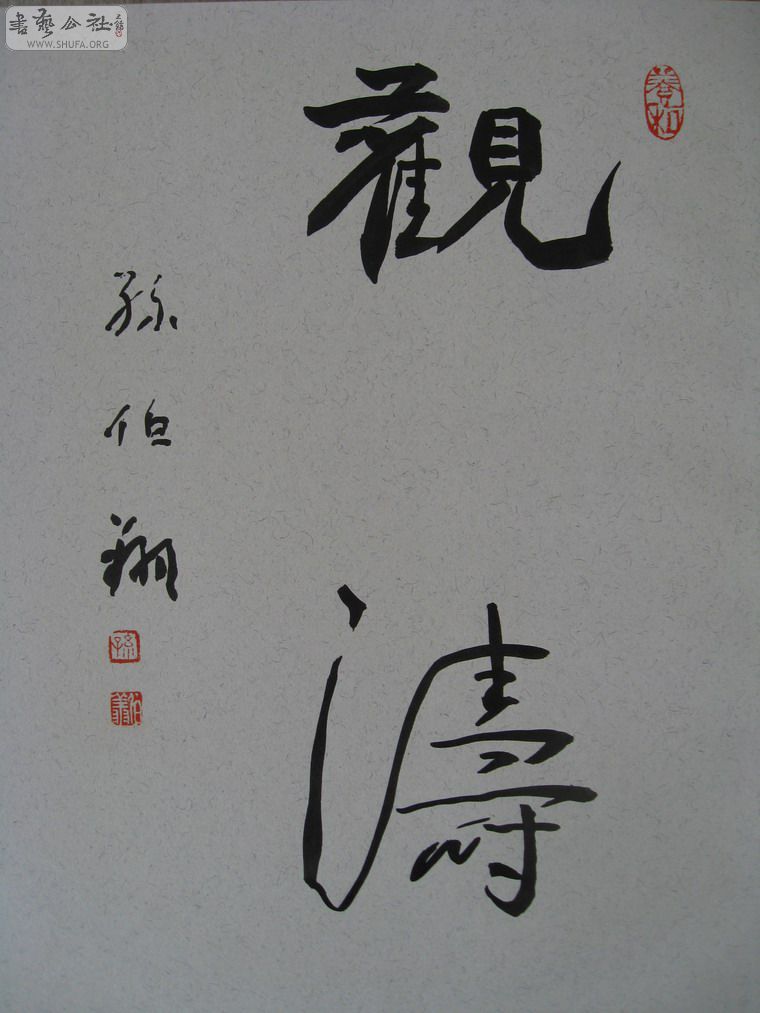 書藝公社
WWW.SHUFA.ORG
觀濤
孫伯翔
孫